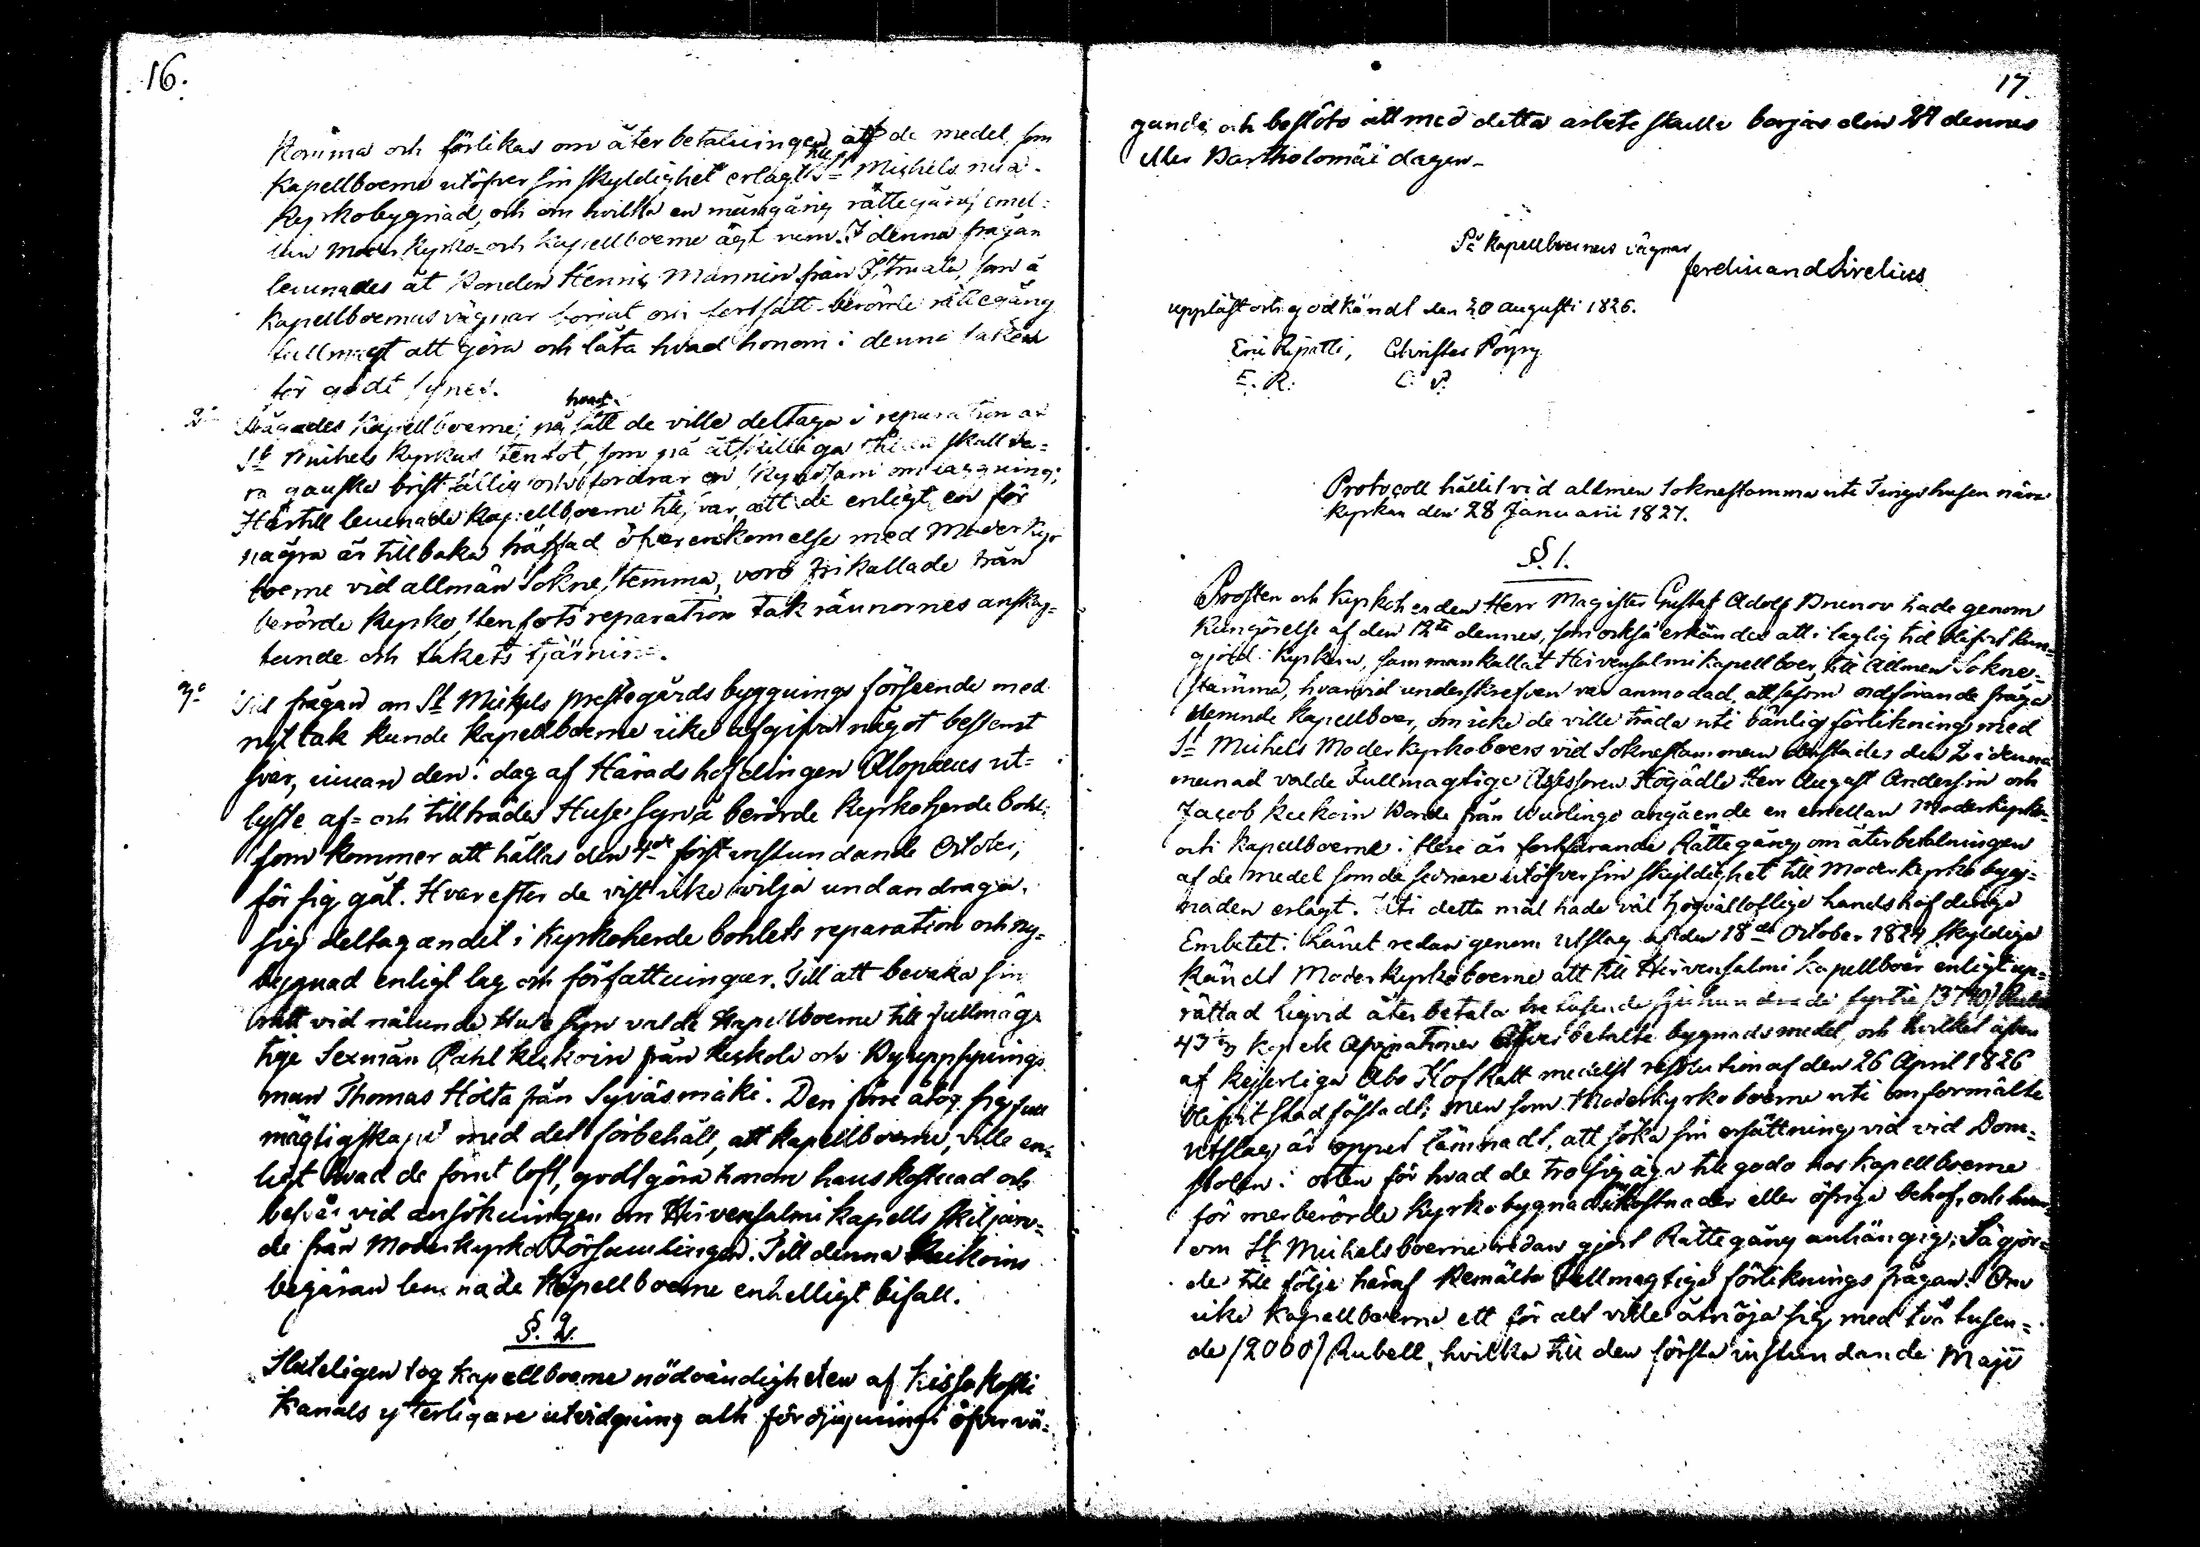 16.
komma och förlikas om återbetalningen af de medel, som
kapellboerne utöfver sin skyldighet erlagt till St Michels nya
Kyrkobygnad, och om hvilka en mångårig rättegång emel-
lan Moder Kyrko- och Kapellboerne ägt rum. I denna frågan
lemnades åt Bonden Hennig Manninen från som å
Kapellboernas vägnar börjat och fortsatt berörde rättegång
fullmagt att göra och låta hvad honom i denna saken
för godt synes.
2o Frågades Kapellboerne; på hvad sätt de ville deltaga i reparation af
St Michels Kyrkas stenfot, som på åtskilliga ställen skall va-
ra ganska bristfällig och fordrar en skyndsam omlaggning;
Härtill lemnade Kapellboerne till svar, att de enligt en för
några år tillbaka träffad öfverenskomelse med Moderkyrko
boerne vid allmän Sockne stemma, voro frikallade från
berörde Kyrko stenfots reparation takrännornes anskaf-
fande och takets tjärning.
3o Till frågan om St Michels prestegårds byggnings förseende med
nytt tak kunde kapellboerne icke afgifva något bestemt
svar, innan den i dag af Häradshöfdingen Alopaeus ut-
lyste af- och tillträdes Huse syn å berörde Kyrkoherde bohl,
som kommer att hållas den 4de först instundande October,
för sig gåt. Hvarefter de vist icke vilja undandraga
sig deltagandet i Kyrkoherde bohlets reparation och ny-
byggnad enligt lag och författningar. Till att bevaka sin
rätt vid nämnde Huse syn valde Kapellboerne till fullmäg-
tige Sexman Pahl Keikoin från Keskola och Byuppsynings
man Thomas Hölta från Syväsmäki. Den förre åtog sig full
mägtigskapet med det förbehåll, att kapellboerne, ville en-
ligt hvad de fornt loft, godtgöra honom hans kostnad och
besvär vid ansökningen om Hirvensalmi kapells skiljan-
de från Moderkyrko Församlingen. Till denna Keikoins
begäran lemnade Kapellboerne enhelligt bifall.
§. 2.
Sluteligen tog kapellboerne nödvändigheten af Kissakoski
Kanals ytterligare utvidgning och fördjupning i öfvervä-
17
gande och beslöto att med detta arbete skulle börjas den 24 dennes
eller Bartholomäi dagen.
På Kapellboernes vägnar
Ferdinand Sirelius
uppläst och godkändt den 20 augusti 1826.
Eric Repatti, Christer Pöyry
E. R. C. P.
Protocoll hållit vid allmen Soknestamma uti Tingshusen nära
kyrkan den 28 Januarii 1827.
§. 1.
Prosten och Kyrkoherden Herr Magister Gustaf Adolf Brunov hade genom
Kungörelse af den 12te dennes, som också erkändes att i laglig tid blifvit kun-
gjord i Kyrkan, sammankallat Hirvensalmi kapellboer, till Allmen Sokne-
stämma, hvarvid underskrefven var anmodad, att såsom ordförande fråga
bemende kapellboer, om icke de ville träda uti vänlig förlikning med
St Michels Moderkyrkoboers vid Soknestamman därstädes den i denna
månad valde Fullmagtige Assessoren Högädle Herr August Andersin och
Jacob Keikoin Bonde från angående en emellan Moderkyrko-
och Kapellboerne i flere år fortfarande Rättegång om återbetalningen
af de medel som de senare utöfver sin skyldighet till Moderkyrko bygg-
naden erlagt. Uti detta mål hade väl högvälloflige Landshöfdinge
Embetet i Länet redan genom Utslag af den 18de October 1824 skyldige
kändt Moderkyrkoboerne att till Hirvensalmi kapellboer enligt up-
rättad Liqvid återbetala tre tusende sjuhundrade fyrtio (3740) Rubel
43 kopek Assignationer öfverbetalte bygnadsmedel, och hvilket äfven
af Kejserliga Åbo HofRätt medelst resolution af den 26 April 1826
blifvit stadfästadt; men som Moderkyrkoboerne uti omformälte
utslag är öppet lämnadt, att söka sin ersättning vid vid Dom-
stolen i orten för hvad de tro sig äga till godo hos kapellboerne
för merberörde Kyrkobygnads kostnader eller öfriga behof, och hvar-
om St Michelsboerne redan gjort Rättegång anhängig; Så gjor-
de till följe häraf bemälte Fullmagtige förliknings frågan: Om
icke Kapellboerne ett för alt ville åtnöja sig med två tusen-
de (2000) Rubell, hvilka till den första instundande Maji